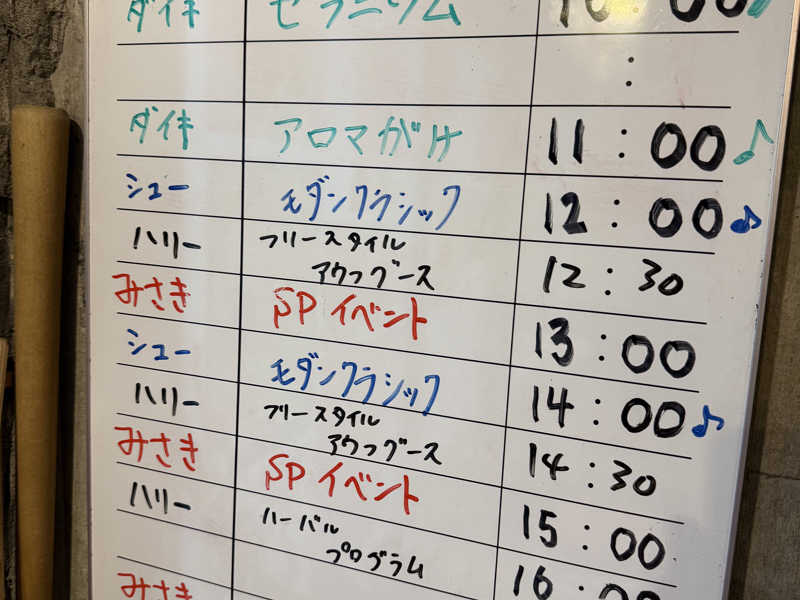 ダイキ ゼラニウム 10:00♪
:
ダイキ アロマがけ 11:00♪
シュー モダンクラシック 12:00♪
ハリー フリースタイル
アウフグース 12:30
みさき SPイベント 13:00
シュー モダンクラシック 14:00♪
ハリー フリースタイル
アウフグース 14:30
みさき SPイベント 15:00
ハリー ハーバル
プログラム 16:00
みさき